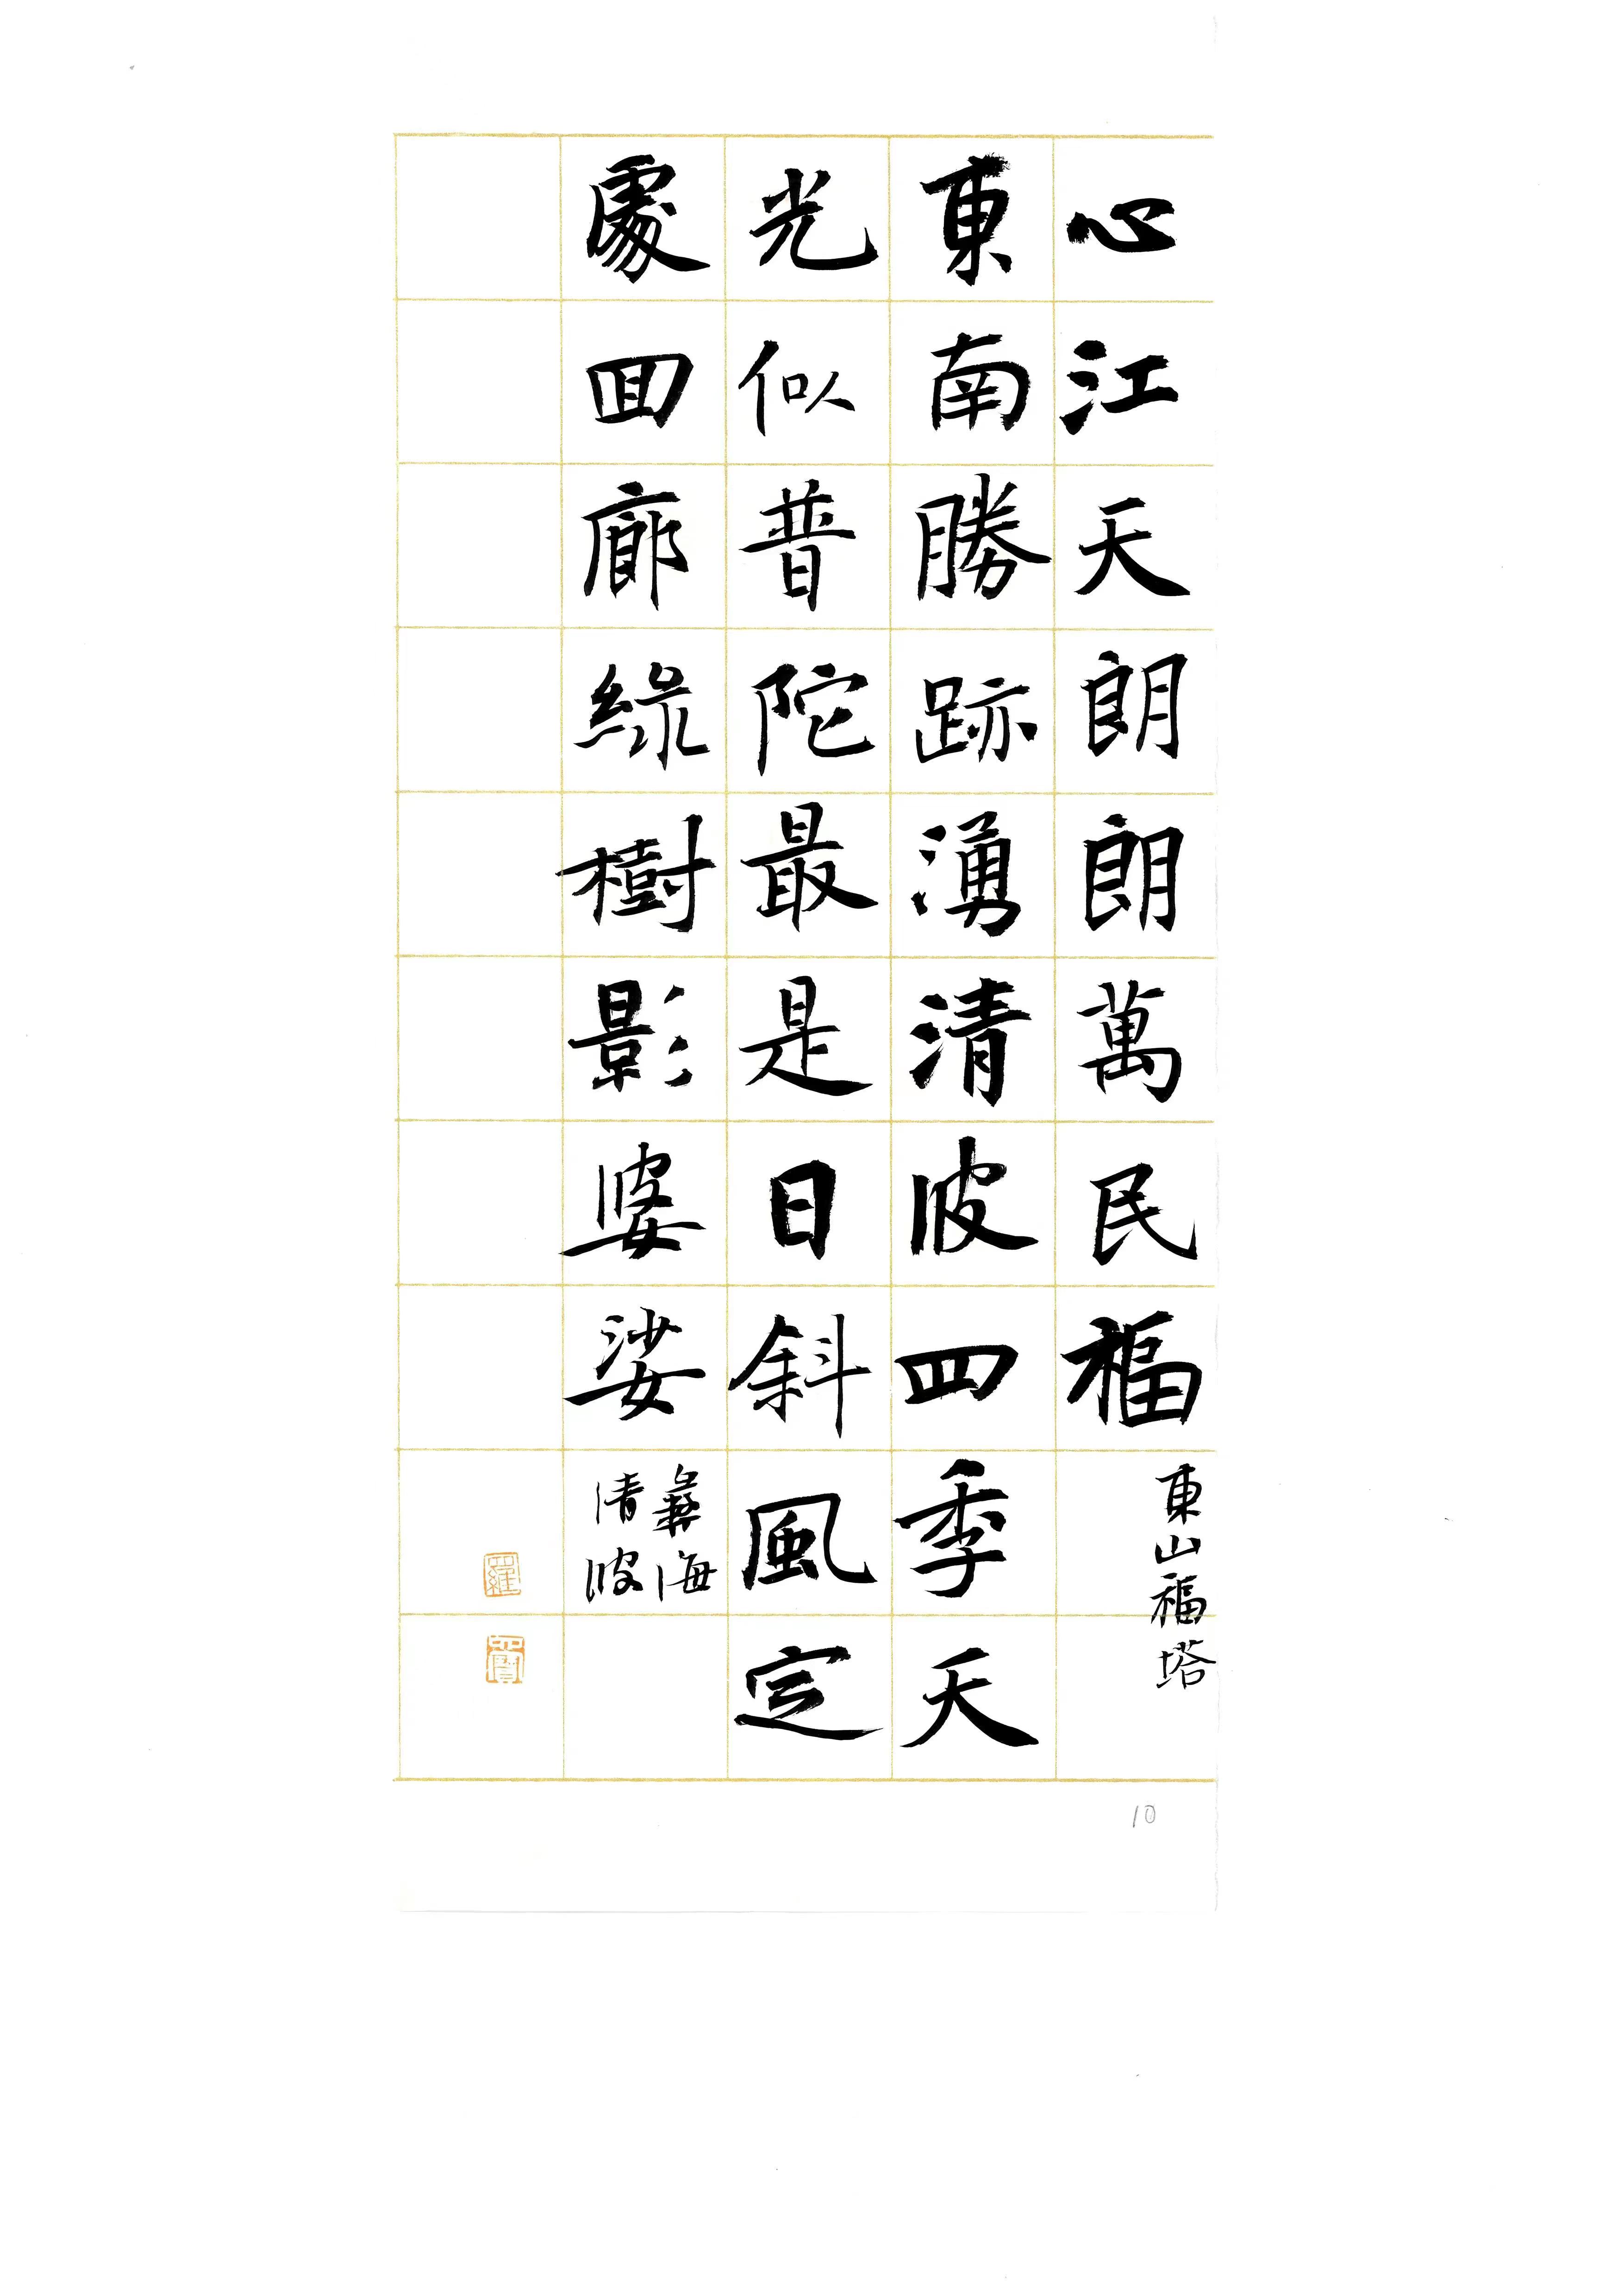 心江天朗朗萬民福
東山福塔
東南勝跡湧清波四季天
光似普陀最是日斜風定
處回廊綠樹影婆娑
彝海
清波
10